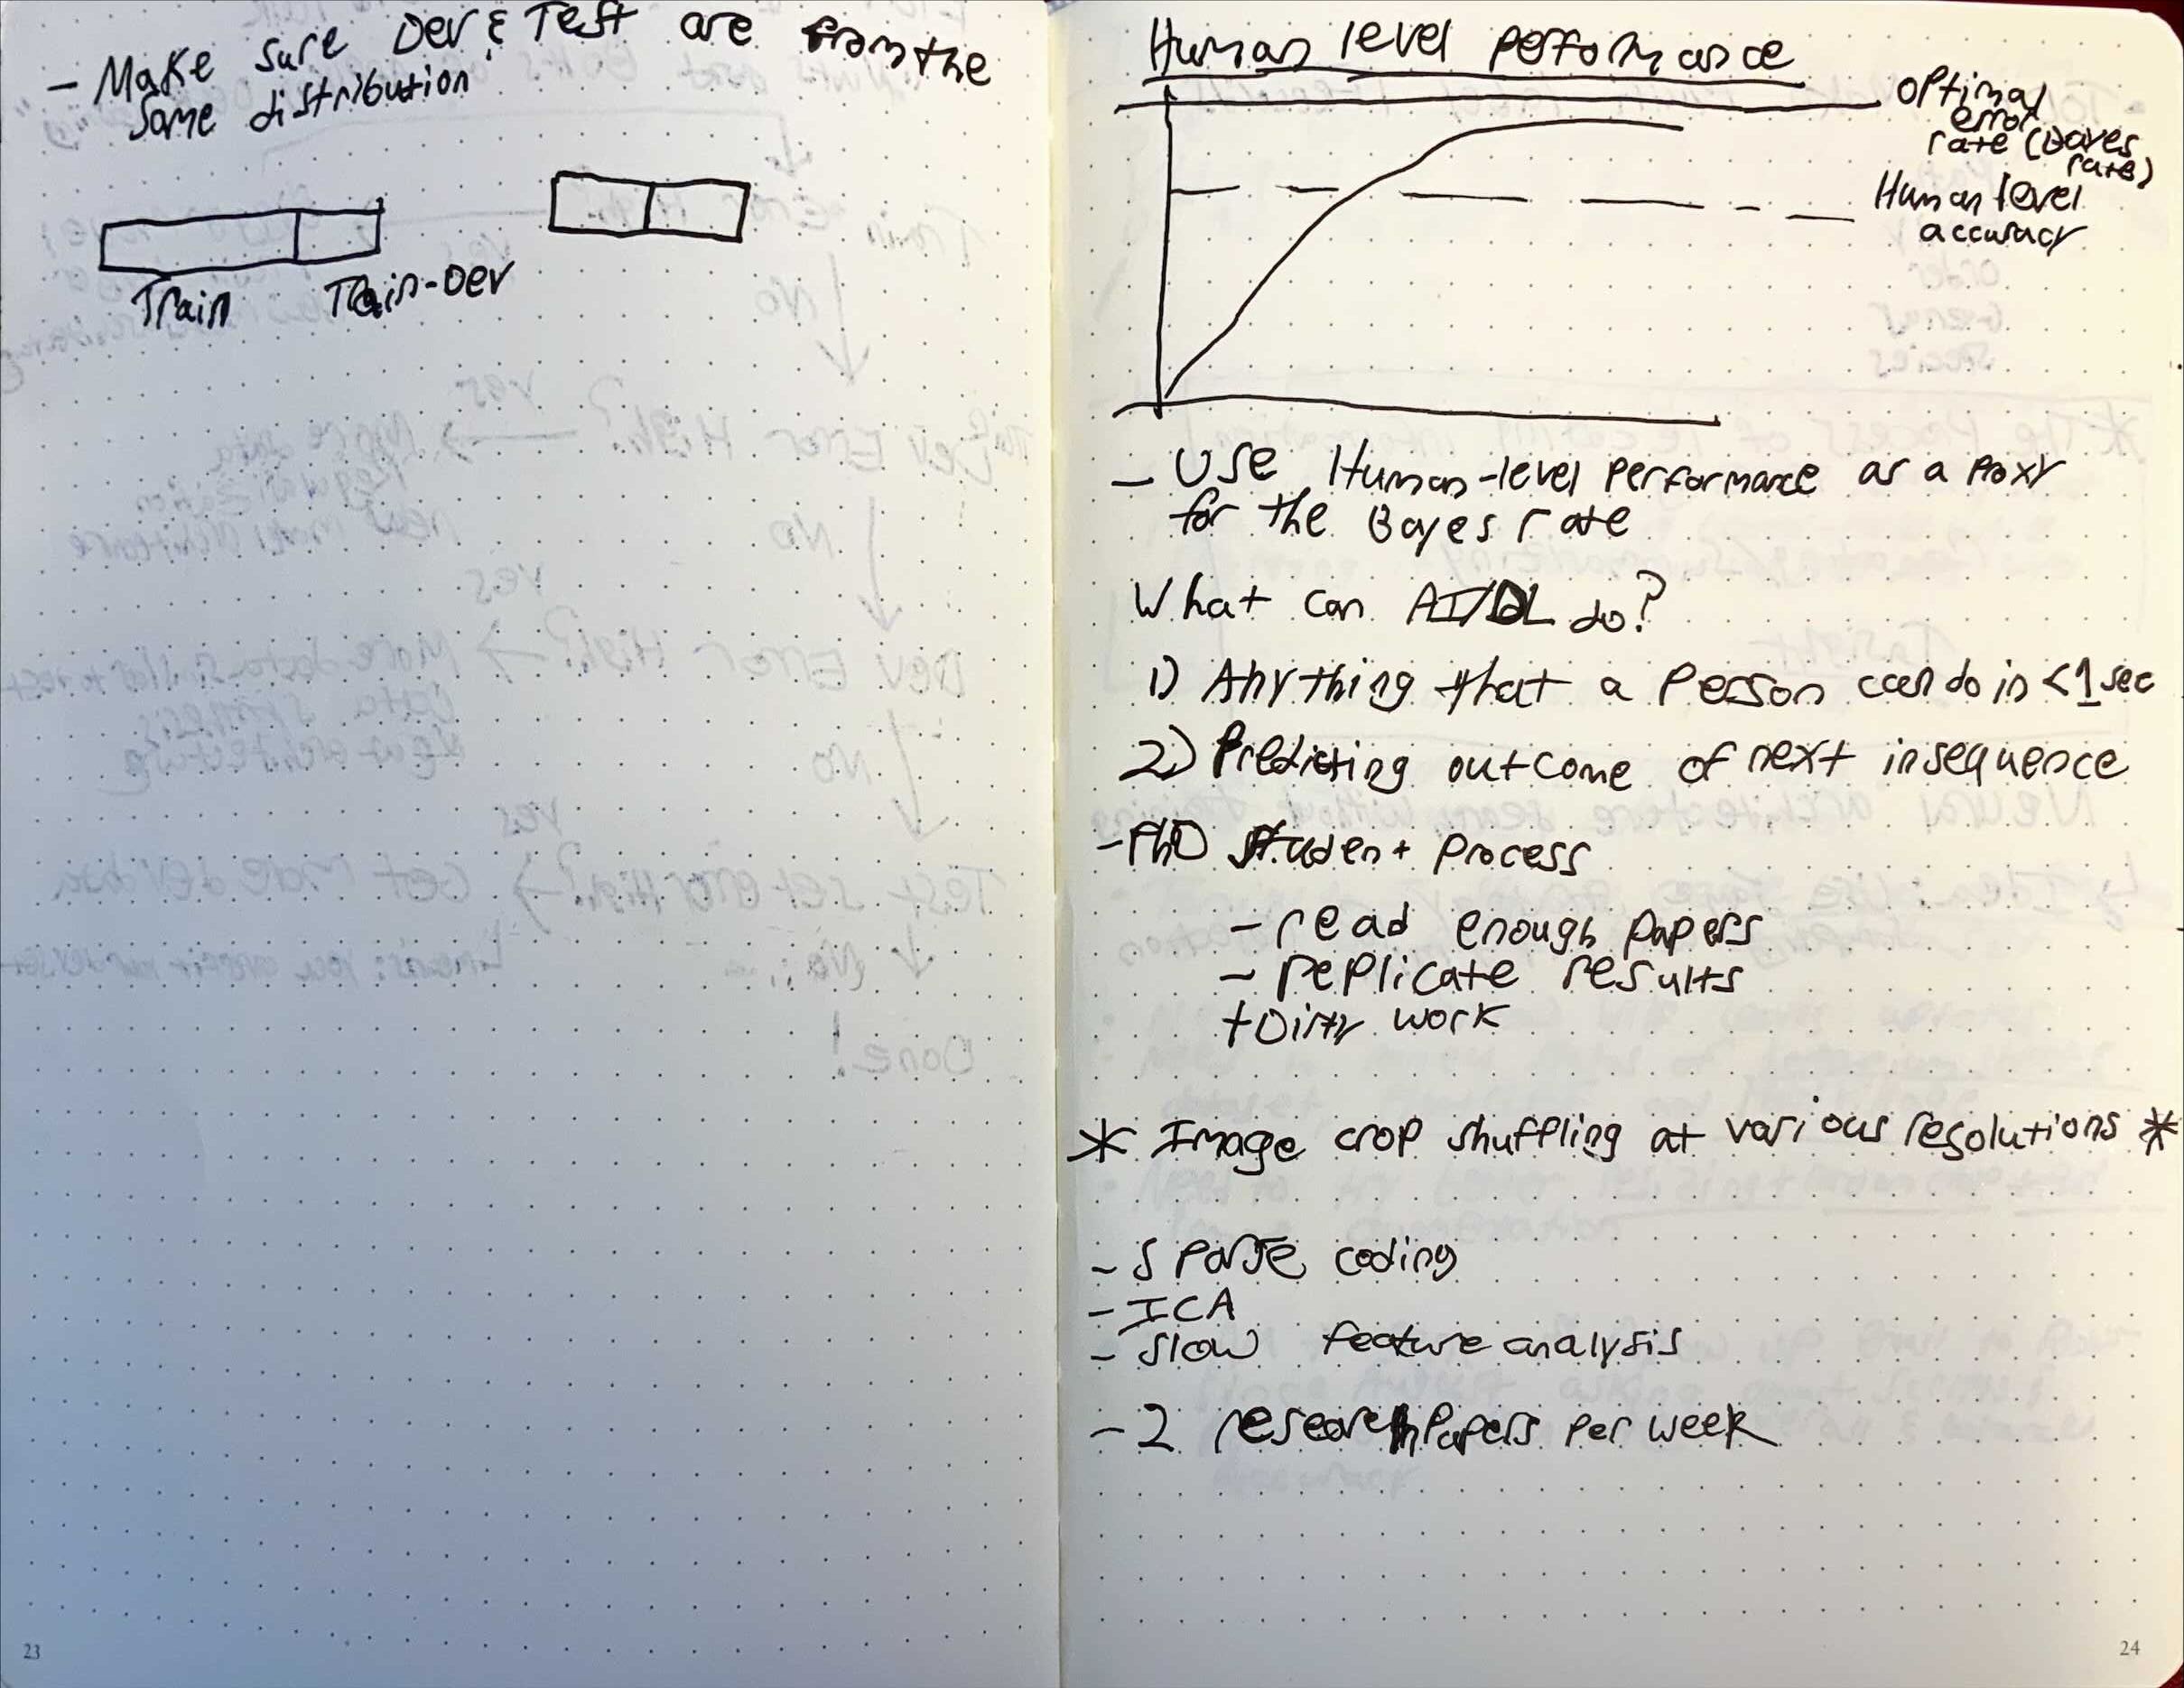 - Make sure Dev & Test are from the
same distribution
Train
Train-Dev
23
Human level performance
optimal
error
rate (Bayes
rate)
Human level
accuracy
- Use Human-level performance as a proxy
for the Bayes rate
What can AI/DL do?
1) Anything that a person can do in <1 sec
2) Predicting outcome of next in sequence
- PhD student process
- read enough papers
- replicate results
+ Dirty work
* Image crop shuffling at various resolutions *
- Sparse coding
- ICA
- Slow feature analysis
- 2 research papers per week
24